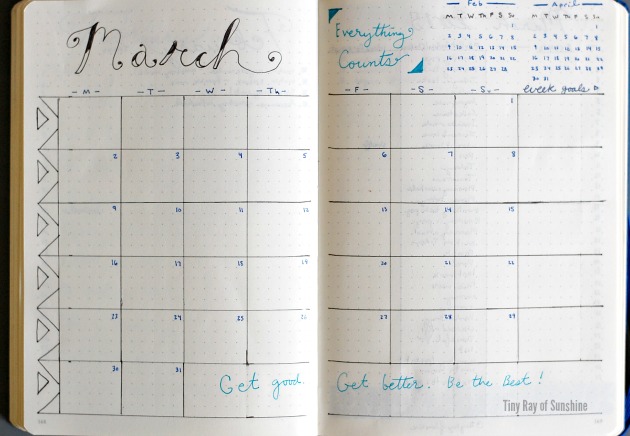 March
Everything
Counts
Feb
M T W Th F S Su
1
2 3 4 5 6 7 8
9 10 11 12 13 14 15
16 17 18 19 20 21 22
23 24 25 26 27 28
April
M T W Th F S Su
1
2 3 4 5 6 7 8
9 10 11 12 13 14 15
16 17 18 19 20 21 22
23 24 25 26 27 28 29
- M - - T - - W - - Th - - F - - S - - Su - week goals
1
2 3 4 5 6 7 8
9 10 11 12 13 14 15
16 17 18 19 20 21 22
23 24 25 26 27 28 29
30 31
Get good. Get better. Be the Best!
Tiny Ray of Sunshine